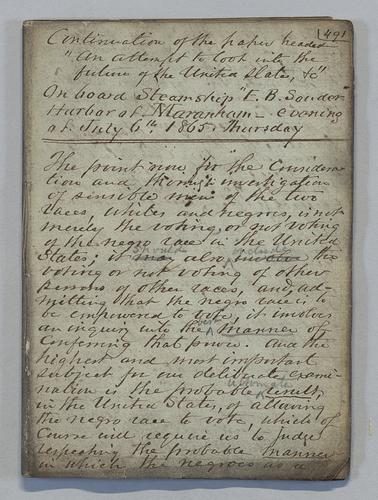 491
Continuation of the paper headed
"An attempt to look into the
future of the United States, &c"
On board Steamship "E. B. Souder"
Harbor of Maranham – evening
of July 6th 1865. Thursday
The point now for the considera-
tion and thorough investigation
of sensible men of the two
races, whites and negroes, is not
merely the voting or not voting
of the negro race in the United
States; it should also include the
voting or not voting of other
persons of other races, and, ad-
mitting that the negro race is to
be empowered to vote, it involves
an inquiry into the best manner of
conferring that power. And the
highest and most important
subject for our deliberate exami-
nation is the probable ultimate result,
in the United States, of allowing
the negro race to vote, which of
course will require us to judge
respecting the probable manner
in which the negroes as a